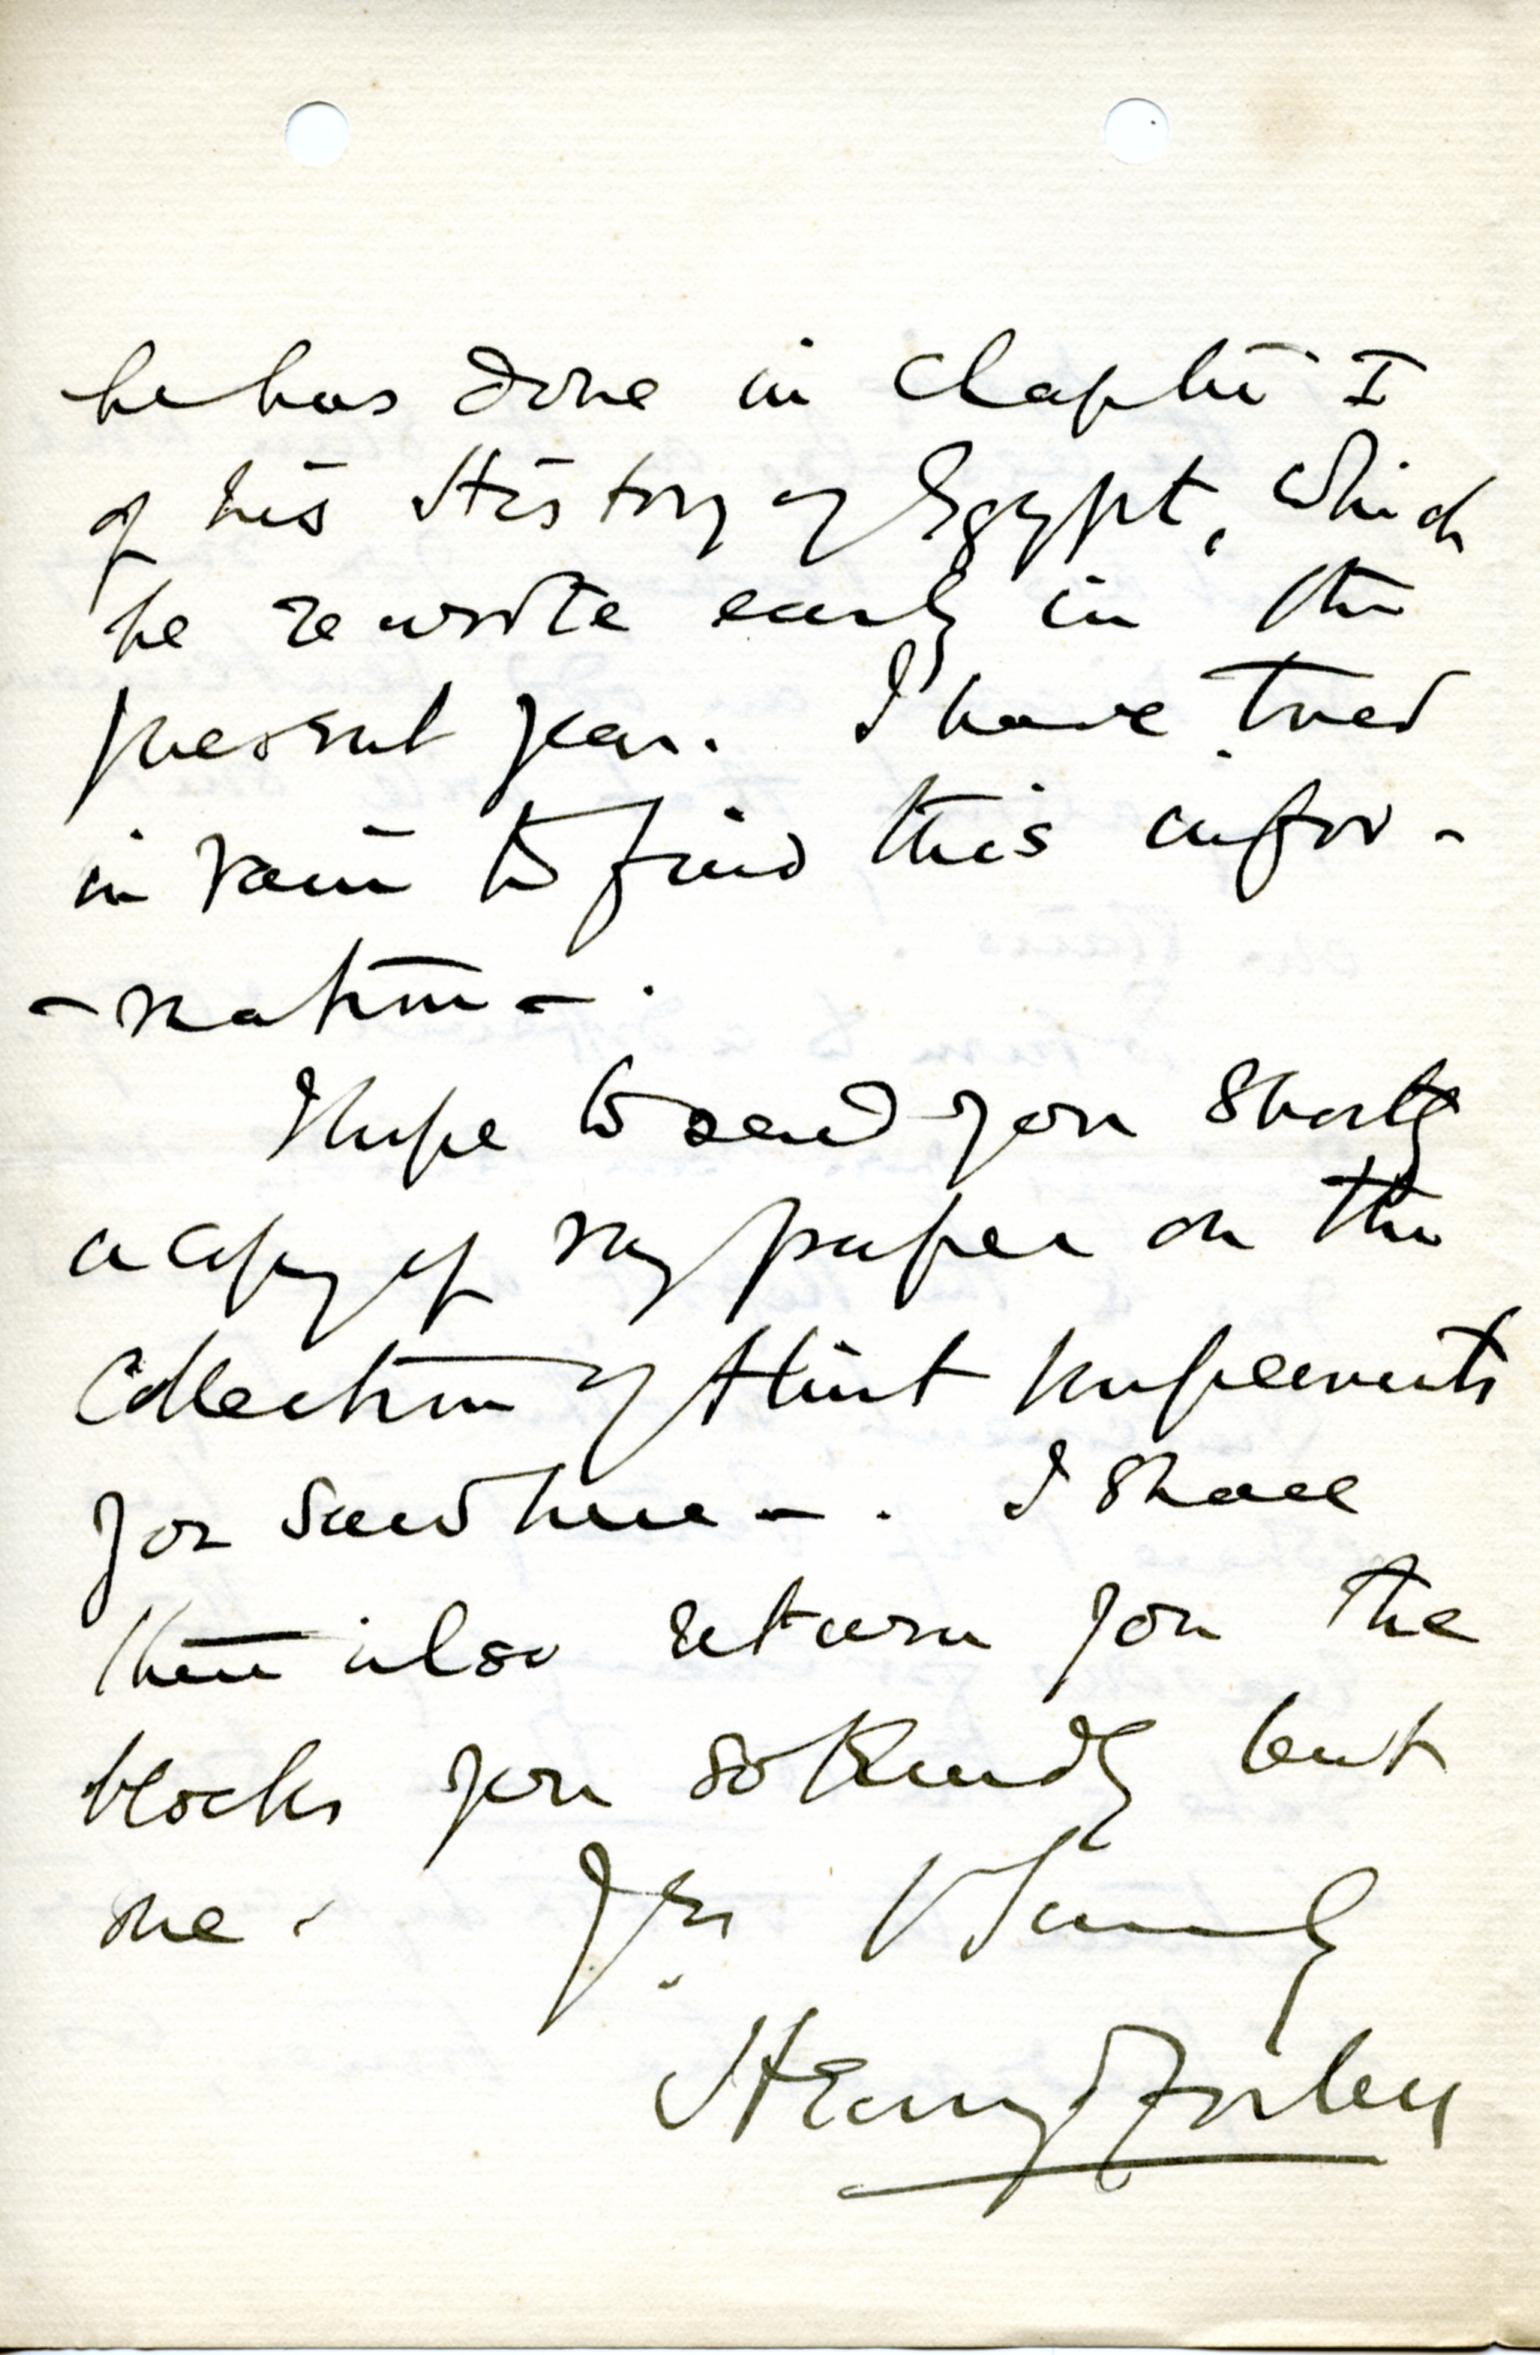 he has done in Chapter I
of his History of Egypt, which
he rewrote early in the
present year. I have tried
in vain to find this infor-
-mation-.
I hope to send you shortly
a copy of my paper on the
Collection of flint Implements
you sent here-. I shall
then also return you the
blocks you so kindly lent
me.    Yrs V Sincerely
Henry O Forbes